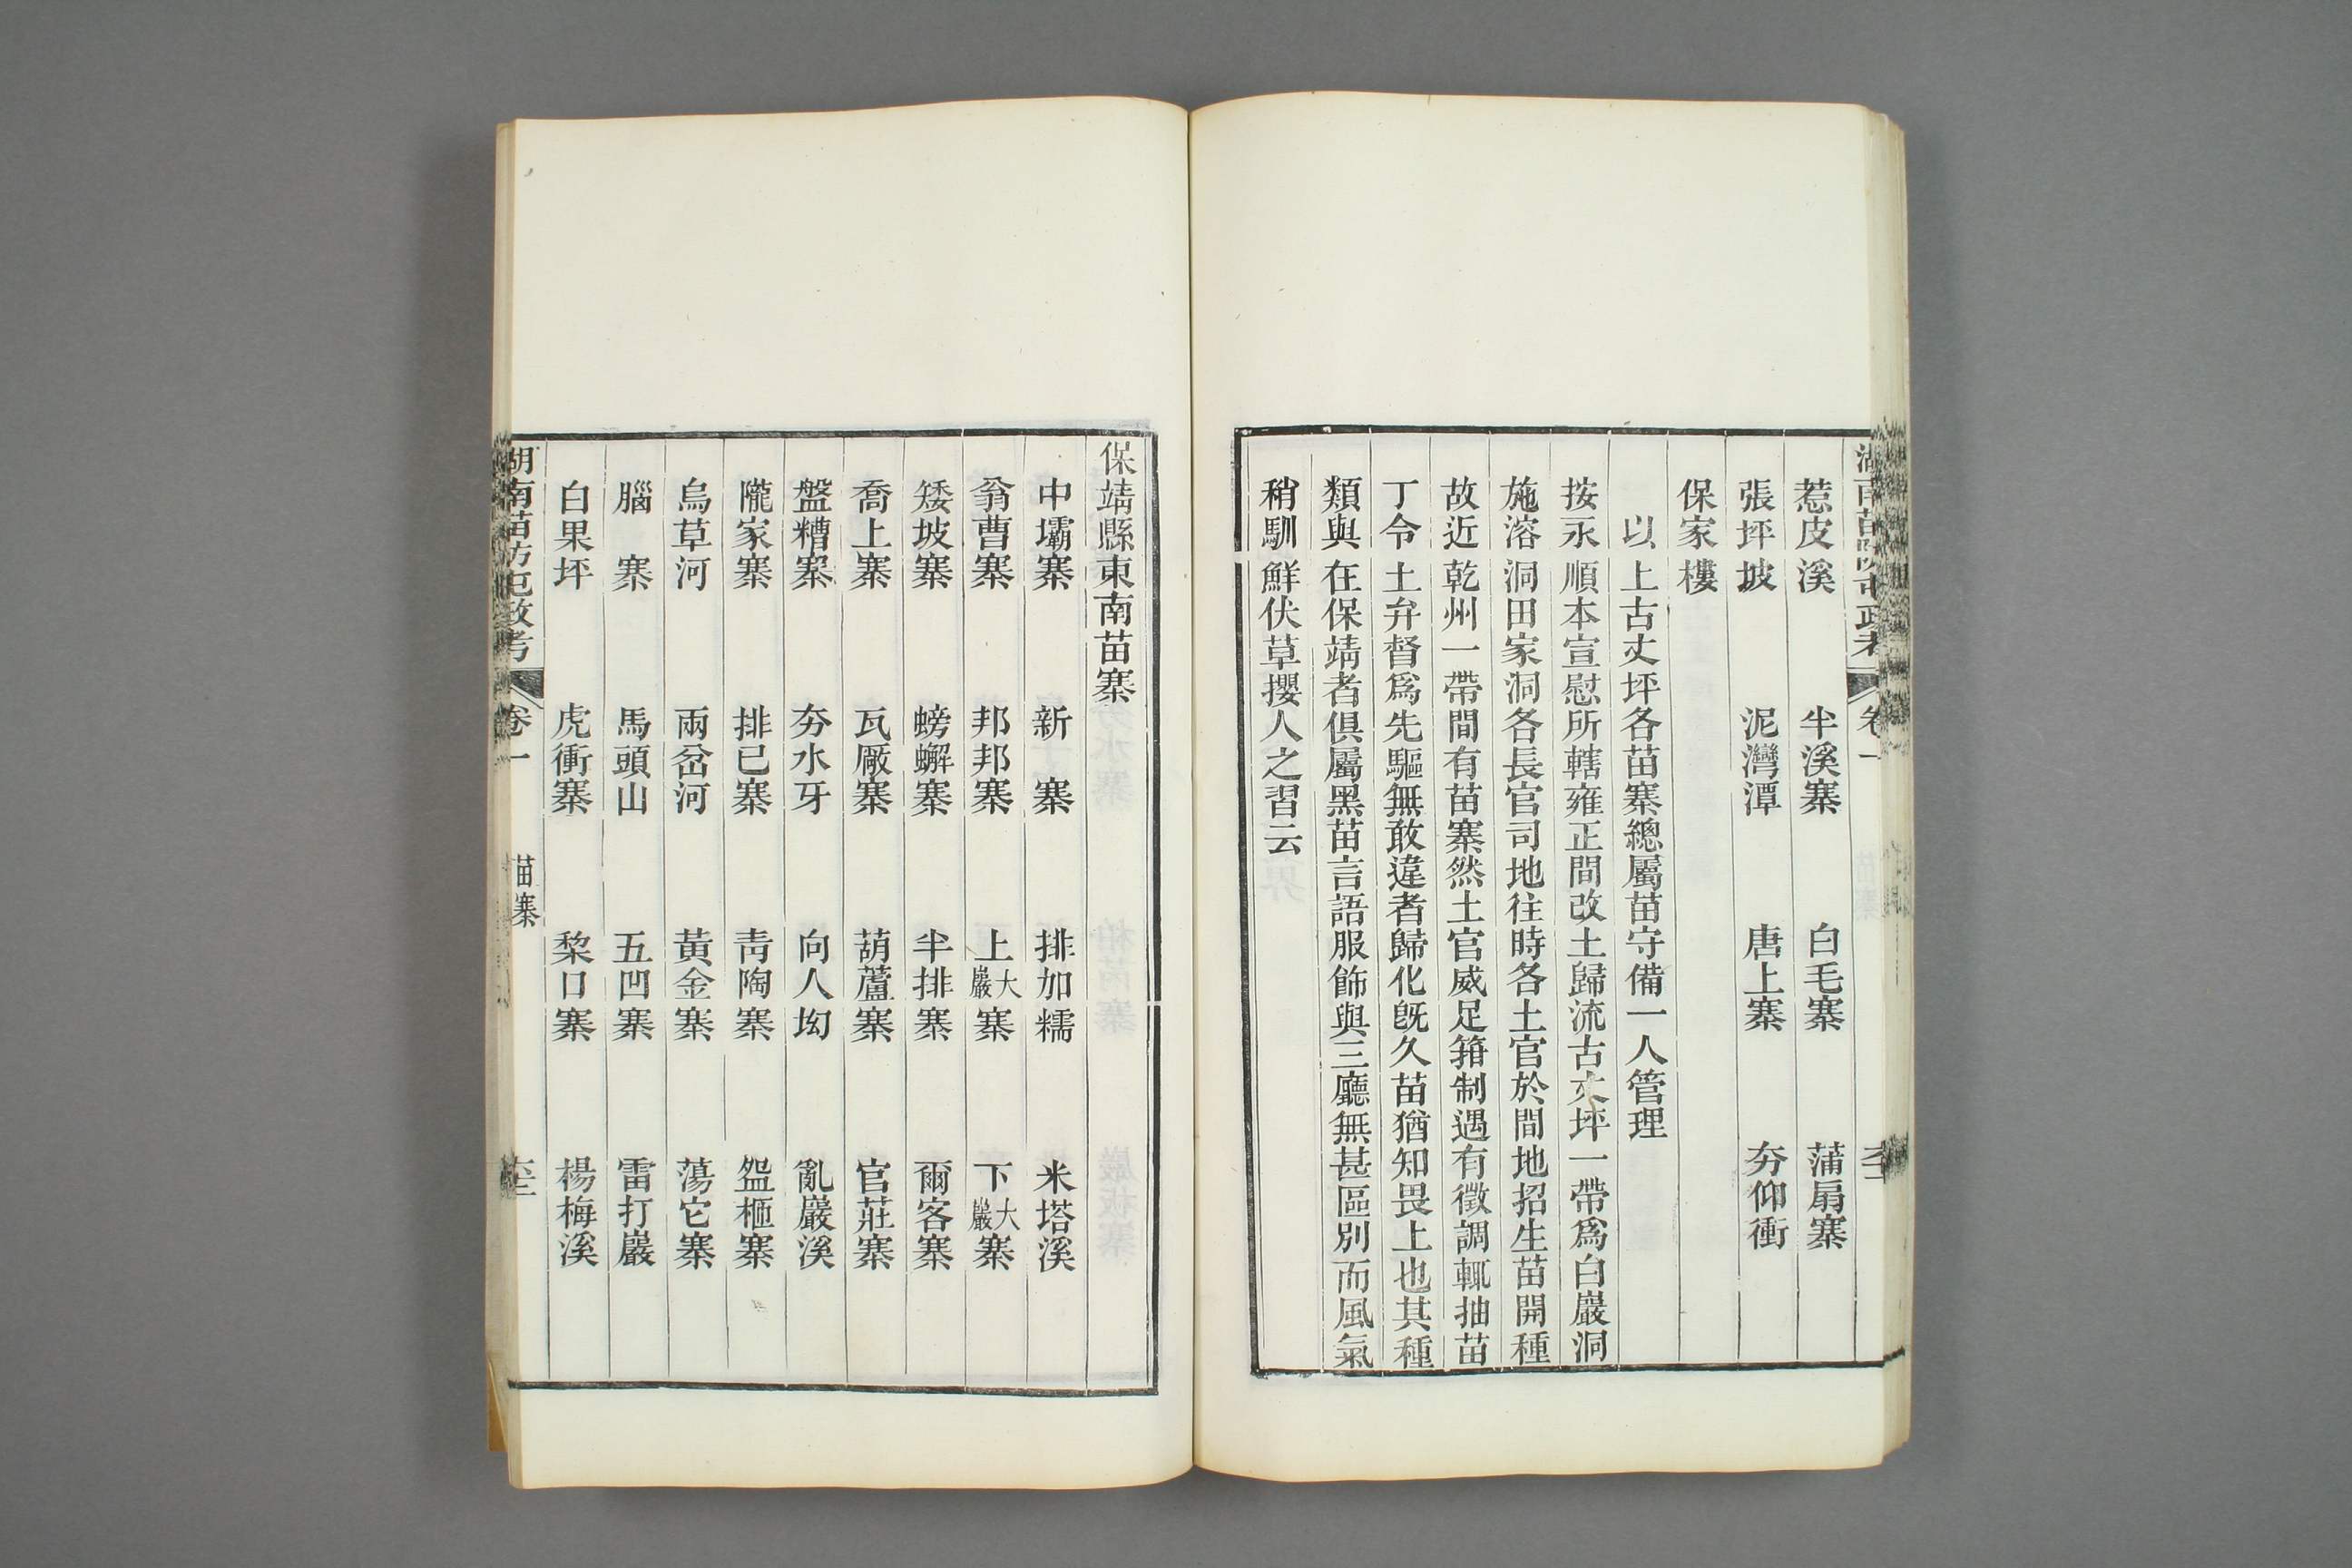 湖南苗防屯政考 卷一
惹皮溪 半溪寨 白毛寨 蒲扇寨
張坪坡 泥灣潭 唐上寨 夯仰衝
保家樓
以上古丈坪各苗寨總屬苗守備一人管理
按永順本宣慰所轄雍正間改土歸流古丈坪一帶爲白巖洞
施溶洞田家洞各長官司地往時各土官於間地招生苗開種
故近乾州一帶間有苗寨然土官威足箝制遇有徵調輒抽苗
丁令土弁督爲先驅無敢違者歸化旣久苗猶知畏上也其種
類與在保靖者俱屬黑苗言語服飾與三廳無甚區別而風氣
稍馴鮮伏草攖人之習云
保靖縣東南苗寨
中壩寨 新寨 排加糯 米塔溪
翁曹寨 邦邦寨 上大巖寨 下大巖寨
矮坡寨 螃蠏寨 半排寨 爾客寨
喬上寨 瓦厰寨 葫蘆寨 官莊寨
盤糟寨 夯水牙 向人坳 亂巖溪
隴家寨 排已寨 靑陶寨 盌柂寨
烏草河 兩岔河 黃金寨 蕩它寨
腦寨 馬頭山 五凹寨 雷打巖
白果坪 虎衝寨 棃口寨 楊梅溪
湖南苗防屯政考 卷一 苗寨